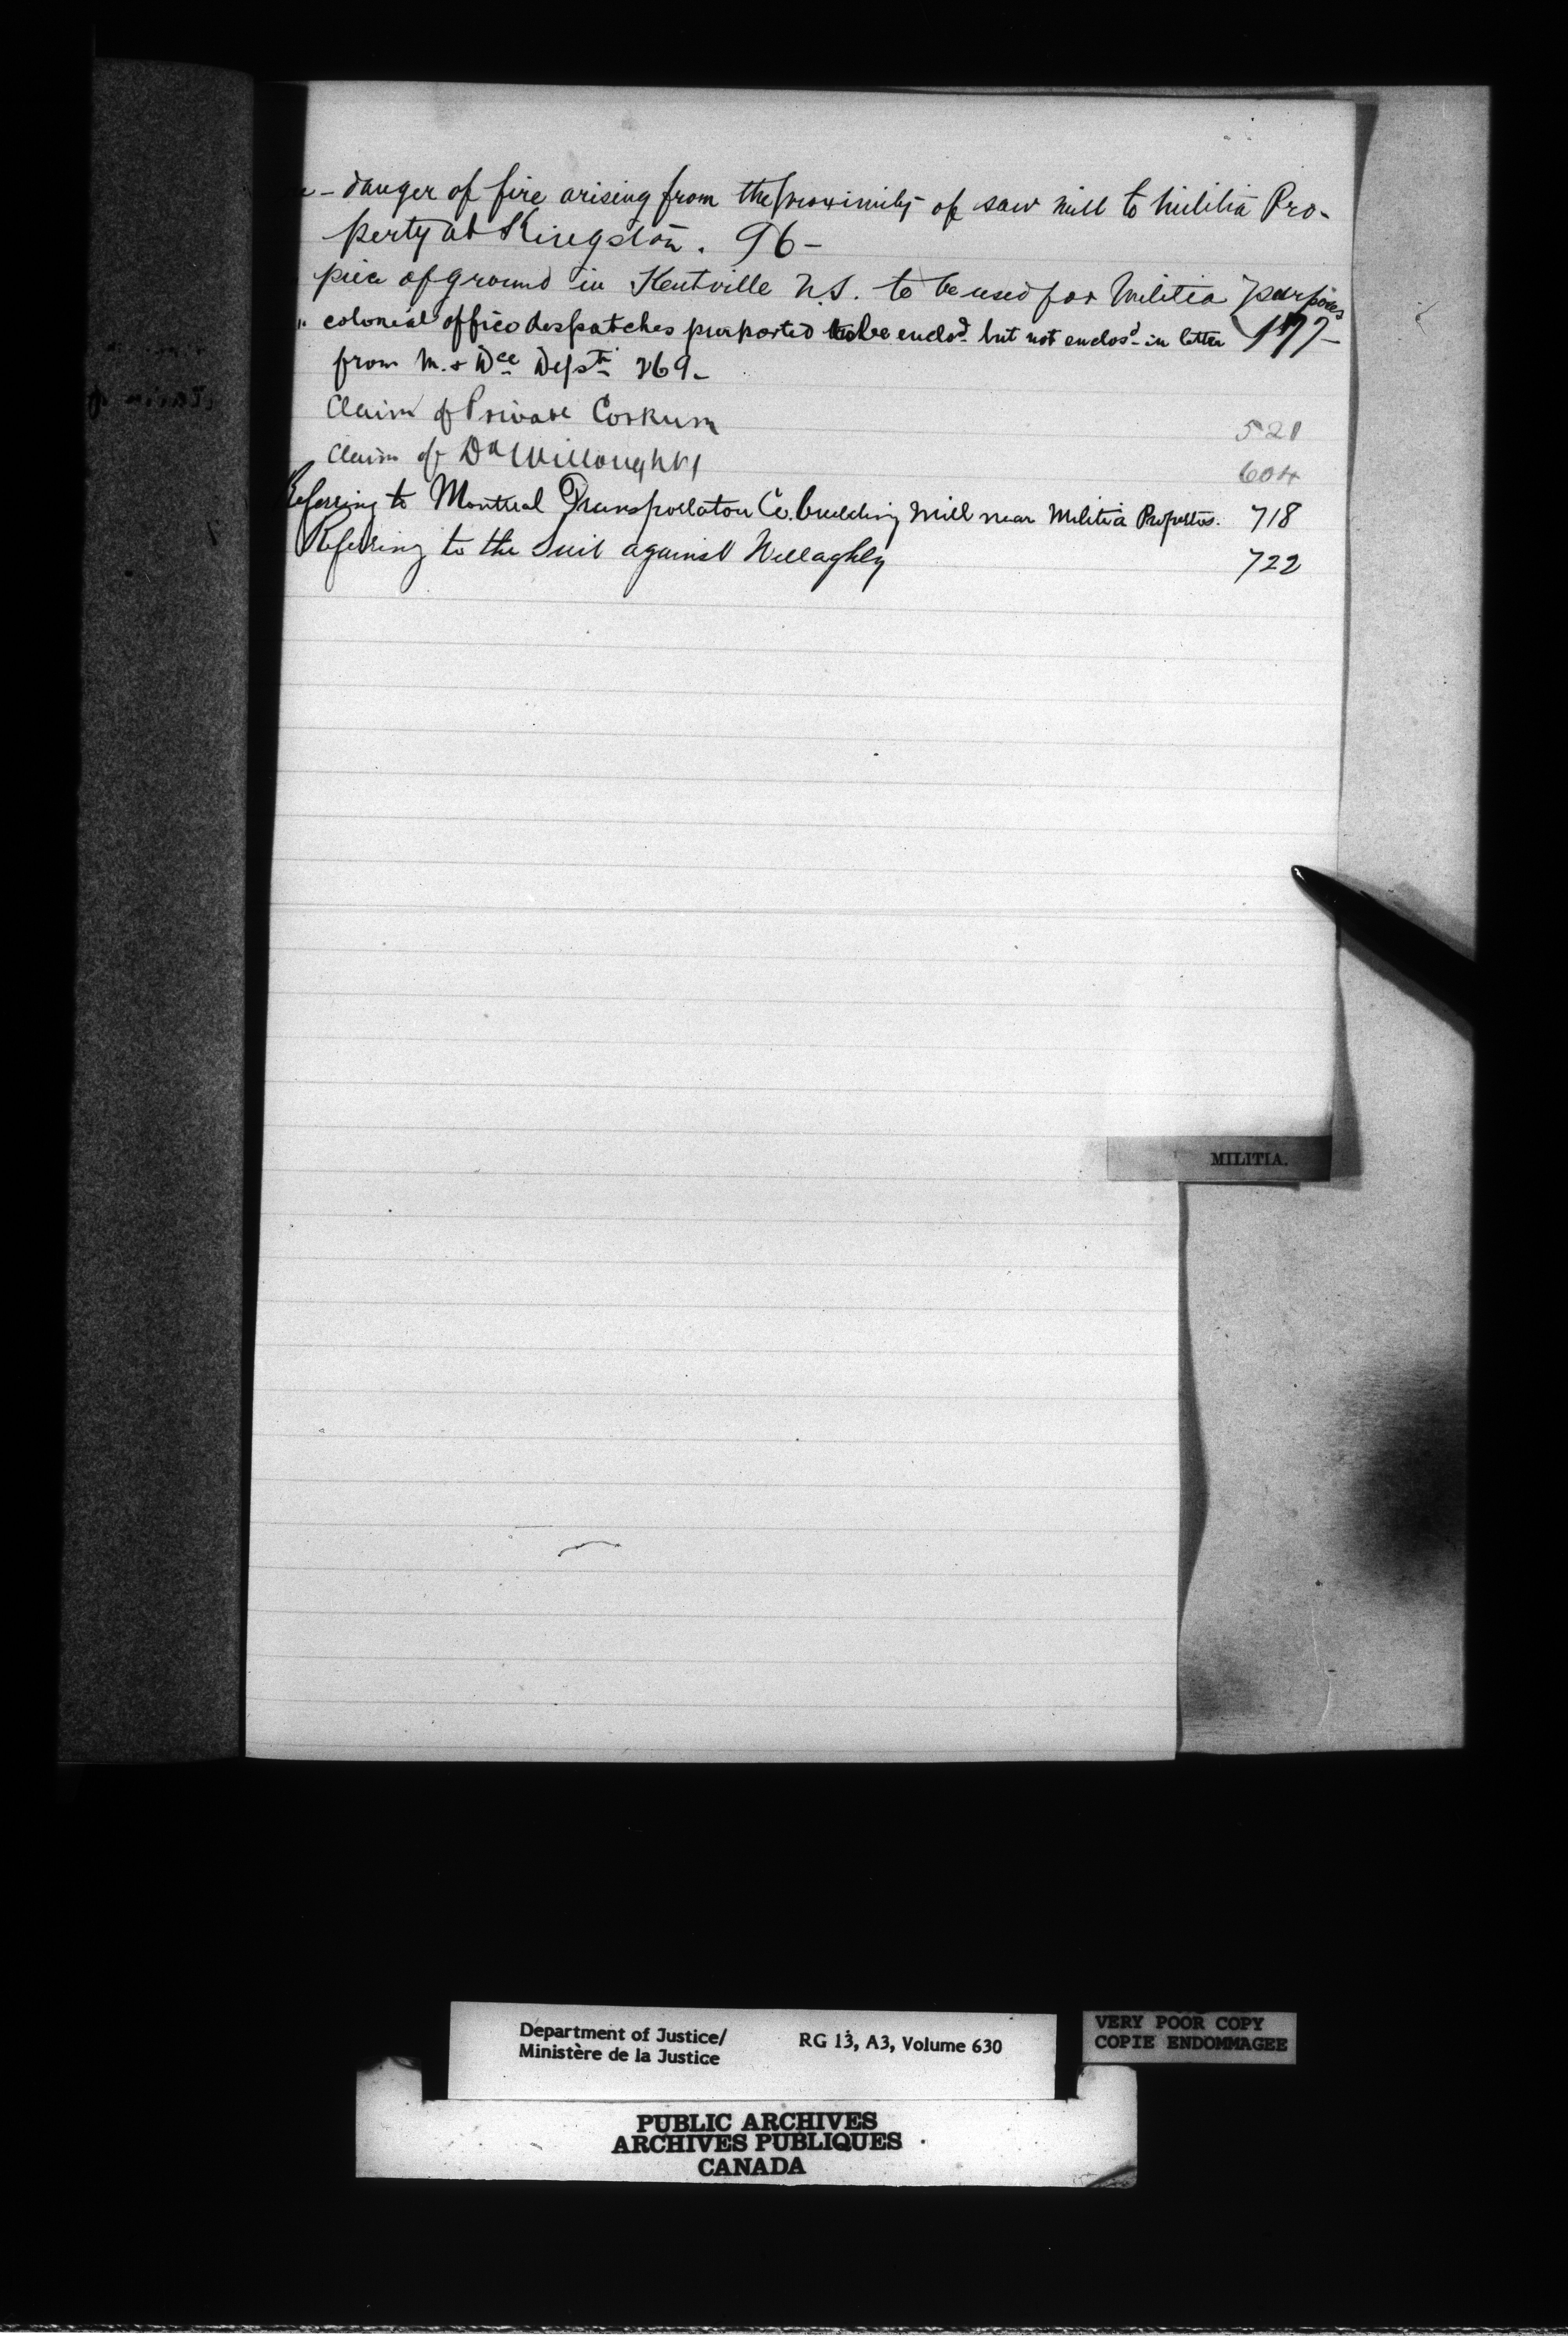 - danger of fire arising from the proximity of saw mill to Militia Pro-
perty at Kingston. 96-
piece of ground in Kentville N.S. to be used for Militia purposes
177-
" colonial office despatches purported to be enclosd. but not enclosd. in letter
from M. & Dce Dept. 269-
Claim of Private Corkum 521
Claim of Dr Willoughby 604
Referring to Montreal Transportation Co. building mill near Militia Properties. 718
Referring to the Suit against Willaghby 722
MILITIA.
Department of Justice/
Ministère de la Justice
RG 13, A3, Volume 630
VERY POOR COPY
COPIE ENDOMMAGEE
PUBLIC ARCHIVES
ARCHIVES PUBLIQUES
CANADA